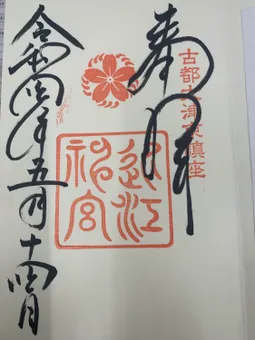 奉拝
古都大津京鎮座
近江
神宮
令和四年五月十四日